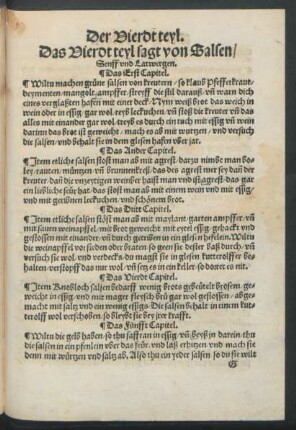 Der Vierdt teyl.
Das Vierdt teyl sagt von Salsen/
Senff vnd Latwergen.
¶ Das Erst Capitel.
¶ Wiltu machen grüne salsen von kreutern/ so klaub Pfefferkraut/
beymenten/ mangolt/ ampffer/ streyff die stil darauß/ vñ
eines verglaßten hafen mit einer deck/ Nym weiß brot das weich in
wein oder in essig/ gar wol/ reyb leckuchen/ vñ stoß die kreuter vñ das
alles mit einander gar wol/ treyb es durch ein tuch mit essig vñ wein
darinn das brot ist geweicht/ mach es ab mit wurtzen/ vnd versuch
die salsen/ vnd behalt sie in dem glesen hafen vber jar.
¶ Das Ander Capitel.
¶ Item etliche salsen stost man ab mit agrest/ darzu nimbt man bos
ley/ rauten/ müntzen vñ brunnenkreß/ das des agrest mer sey dañ der
kreuter/ das die vnzeytigen weinber haist man agrest/ das gat
ein lieblich seür hat/ das stost man ab mit einem wein vnd mit essig/
vnd mit geribnen leckuchen/ vnd schönem brot.
¶ Das Dritt Capitel.
¶ Item etliche salsen stost man ab mit mayland/ garten ampffer/ vñ
mit sauren weinapffel/ mit brot geweicht mit eytel essig/ gehackt vnd
gestossen mit einander/ vñ durch getriben in ein glesen hefelin. Wiltu
die weinapffel vor sieden oder braten/ so gern sie dester baß durch/ vñ
versuch sie wol/ vnd verdecks/ du magst sie in glesen kutterolffen be-
halten/ verstopff das nur wol/ vñ setz es in ein keller/ so dorret es nit.
¶ Das Vierde Capitel.
¶ Item Knobloch salsen bedarff wenig brots/ gebeütelt brosem/ ge-
weicht in essig/ vnd mit mager fleysch brü gar wol gestossen/ abge-
macht mit saltz vnd ein wenig essigs. Die salsen behalt in einem kut-
terolff wol verschoben/ so bleybt sie bey jrer krafft.
¶ Das Fünfft Capitel.
¶ Wiltu die gelb haben/ so thu saffran in essig/ vñ darein/ thu
die salsen in ein pfenlein vber das feür/ vnd laß erhitzen/ vnd mach sie
denn mit würtzen vnd saltz ab. Also thu ein yeder salsen/ so du sie wilt
G